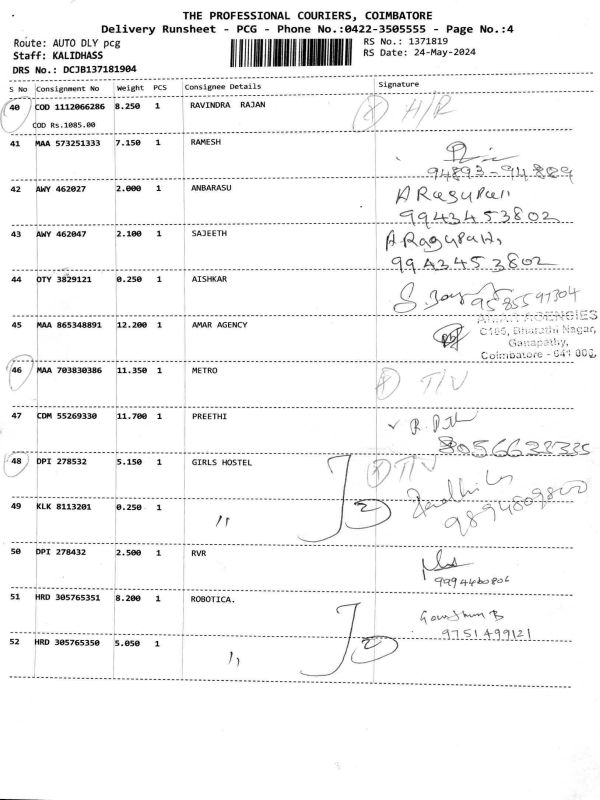 THE PROFESSIONAL COURIERS, COIMBATORE
Delivery Runsheet - PCG - Phone No.:0422-3505555 - Page No.:4
Route: AUTO DLY pcg
RS No.: 1371819
Staff: KALIDHASS
RS Date: 24-May-2024
DRS No.: DCJB137181904
S No Consignment No Weight PCS Consignee Details Signature
40 COD 1112066286 8.250 1 RAVINDRA RAJAN H/R
COD Rs.1085.00
41 MAA 573251333 7.150 1 RAMESH
94893-94889
42 AWY 462027 2.000 1 ANBARASU
9943453802
43 AWY 462047 2.100 1 SAJEETH
9943453802
44 OTY 3829121 0.250 1 AISHKAR
9585597304
45 MAA 865348891 12.200 1 AMAR AGENCY
AMAR AGENCIES
C105, Bharathi Nagar,
Ganapathy,
Coimbatore - 641 006,
46 MAA 703830386 11.350 1 METRO T/V
47 CDM 55269330 11.700 1 PREETHI
48 DPI 278532 5.150 1 GIRLS HOSTEL T/V
49 KLK 8113201 0.250 1 " 2
50 DPI 278432 2.500 1 RVR
9994460806
51 HRD 305765351 8.200 1 ROBOTICA.
9751499121
52 HRD 305765350 5.050 1 " 2